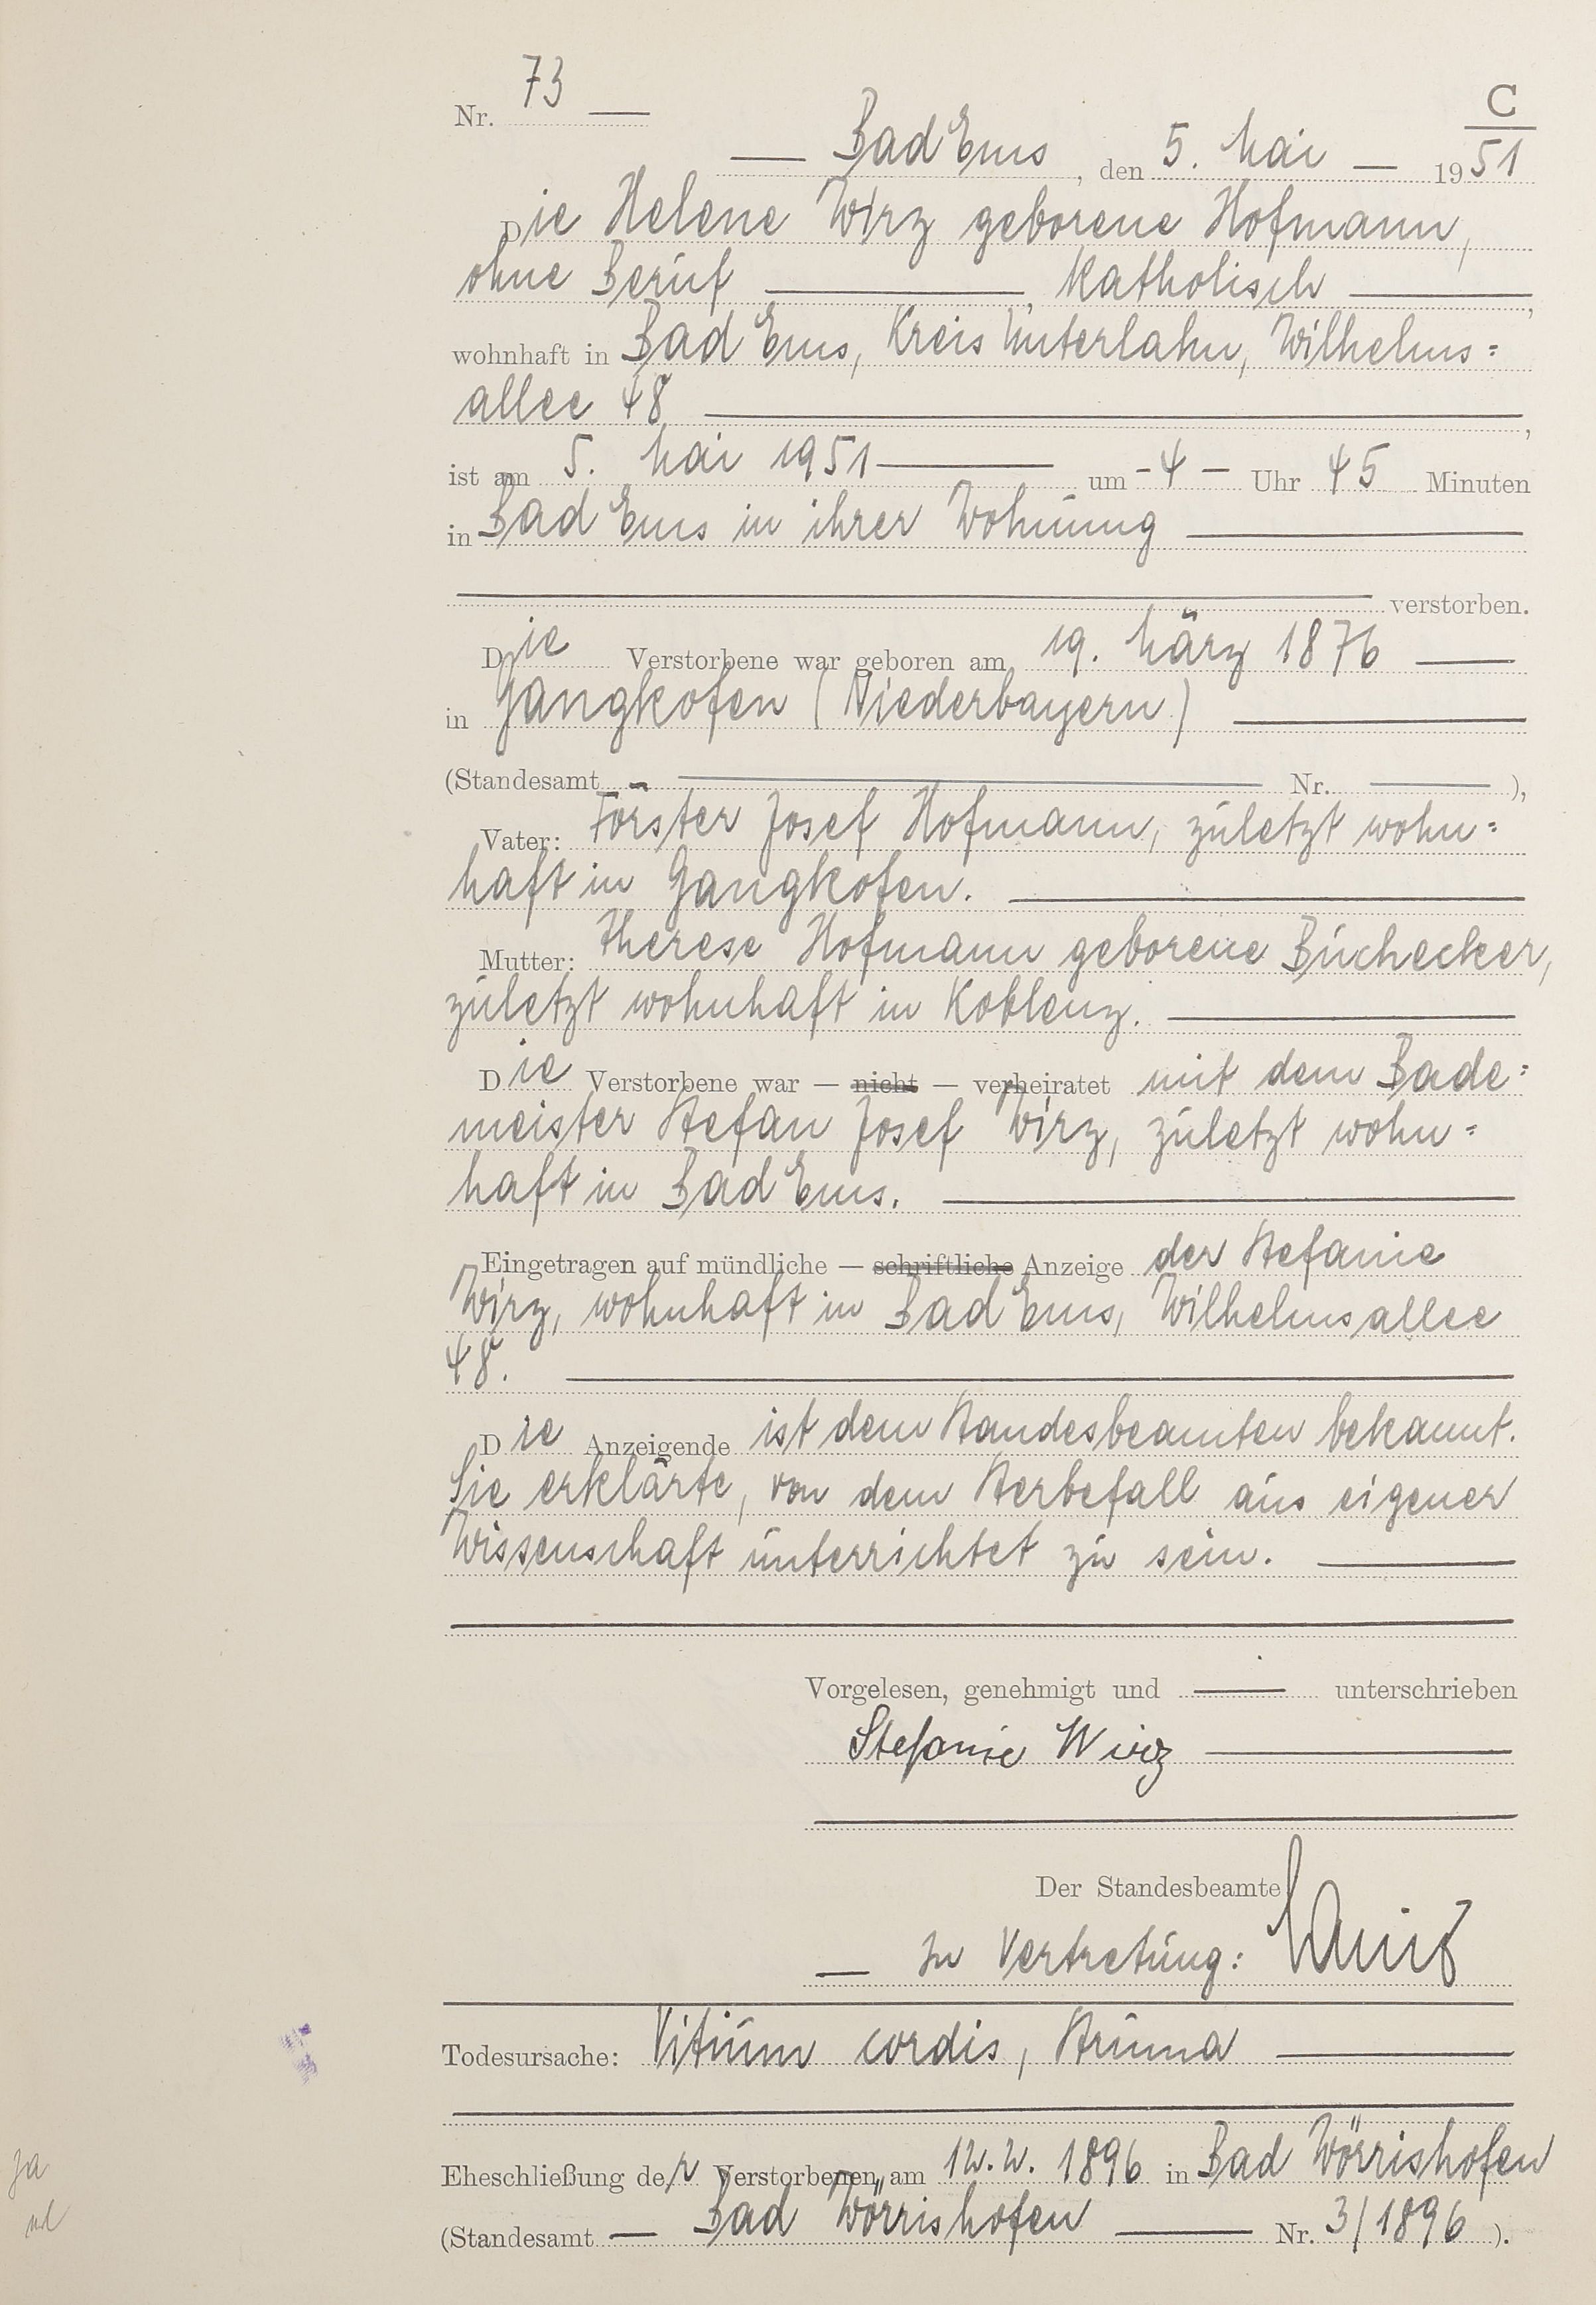 Nr. 73
C
Bad Ems, den 5. Mai 1951
Die Helene Wirz geborene Hofmann,
ohne Beruf, katholisch,
wohnhaft in Bad Ems, Kreis Unterlahn, Wilhelms=
allee 48,
ist am 5. Mai 1951 um - 4 - Uhr 45 Minuten
in Bad Ems in ihrer Wohnung
verstorben.
Die Verstorbene war geboren am 19. März 1876
in Gangkofen (Niederbayern)
(Standesamt Nr. ),
Vater: Förster Josef Hofmann, zuletzt wohn=
haft in Gangkofen.
Mutter: Therese Hofmann geborene Buchecker,
zuletzt wohnhaft in Koblenz.
Die Verstorbene war — nicht — verheiratet mit dem Bade=
meister Stefan Josef Wirz, zuletzt wohn=
haft in Bad Ems.
Eingetragen auf mündliche — schriftliche Anzeige der Stefanie
Wirz, wohnhaft in Bad Ems, Wilhelmsallee
48.
Die Anzeigende ist dem Standesbeamten bekannt.
Sie erklärte, von dem Sterbefall aus eigener
Wissenschaft unterrichtet zu sein.
Vorgelesen, genehmigt und unterschrieben
Stefanie Wirz
Der Standesbeamte
In Vertretung:
Todesursache: Vitium cordis, Struma
Eheschließung der Verstorbenen am 12.2. 1896 in Bad Wörrishofen
(Standesamt Bad Wörrishofen Nr. 3/1896 ).